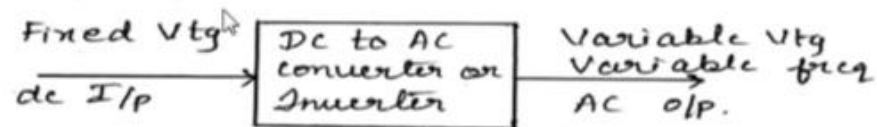 Fixed Vtg
dc I/p
DC to AC
converter or
Inverter
Variable Vtg
Variable freq
AC o/p.